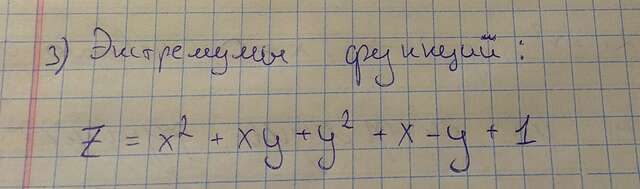 3) Экстремумы функций:
Z = x² + xy + y² + x - y + 1